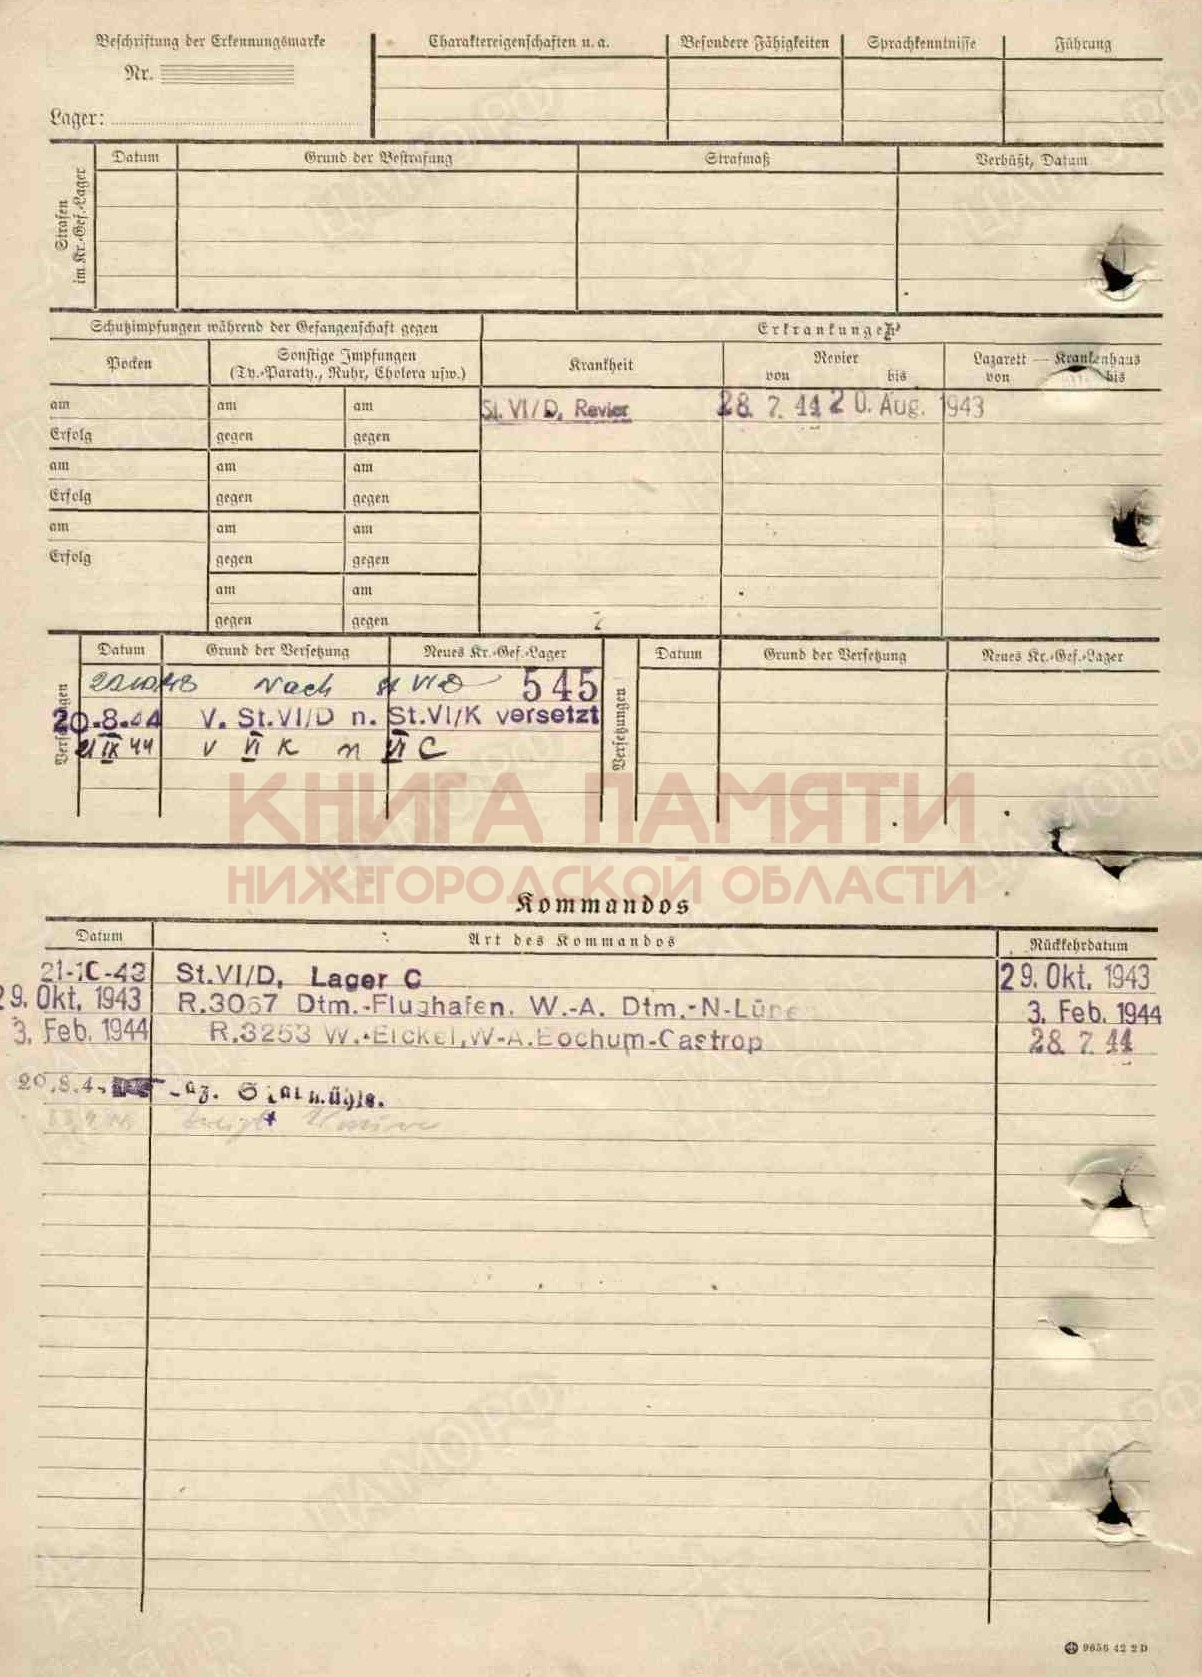 Beschriftung der Erkennungsmarke
Nr.
Lager:
Charaktereigenschaften u. a.
Besondere Fähigkeiten
Sprachkenntnisse
Führung
Strafen im Kr.-Gef.-Lager
Datum
Grund der Bestrafung
Strafmaß
Verbüßt, Datum
Schutzimpfungen während der Gefangenschaft gegen
Erkrankungen
Pocken
Sonstige Impfungen
(Ty.-Paraty., Ruhr, Cholera usw.)
Krankheit
Revier
von bis
Lazarett — Krankenhaus
von bis
am am am
St. VI/D, Revier 28. 7. 44 20. Aug. 1943
Erfolg gegen gegen
am am am
Erfolg gegen gegen
am am am
Erfolg gegen gegen
am am
gegen gegen
Versetzungen
Datum Grund der Versetzung Neues Kr.-Gef.-Lager
Nach St VI D 545
20.8.44 V. St.VI/D n. St.VI/K versetzt
21 IX 44 v VI K n VI C
Versetzungen
Datum Grund der Versetzung Neues Kr.-Gef.-Lager
КНИГА ПАМЯТИ
НИЖЕГОРОДСКОЙ ОБЛАСТИ
Kommandos
Datum Art des Kommandos Rückkehrdatum
21-10-43 St.VI/D, Lager C 29. Okt. 1943
29. Okt. 1943 R.3067 Dtm.-Flughafen. W.-A. Dtm.-N-Lünen 3. Feb. 1944
3. Feb. 1944 R.3253 W.-Eickel, W-A. Bochum-Castrop 28. 7. 44
20.8.4
9656 42 2 D